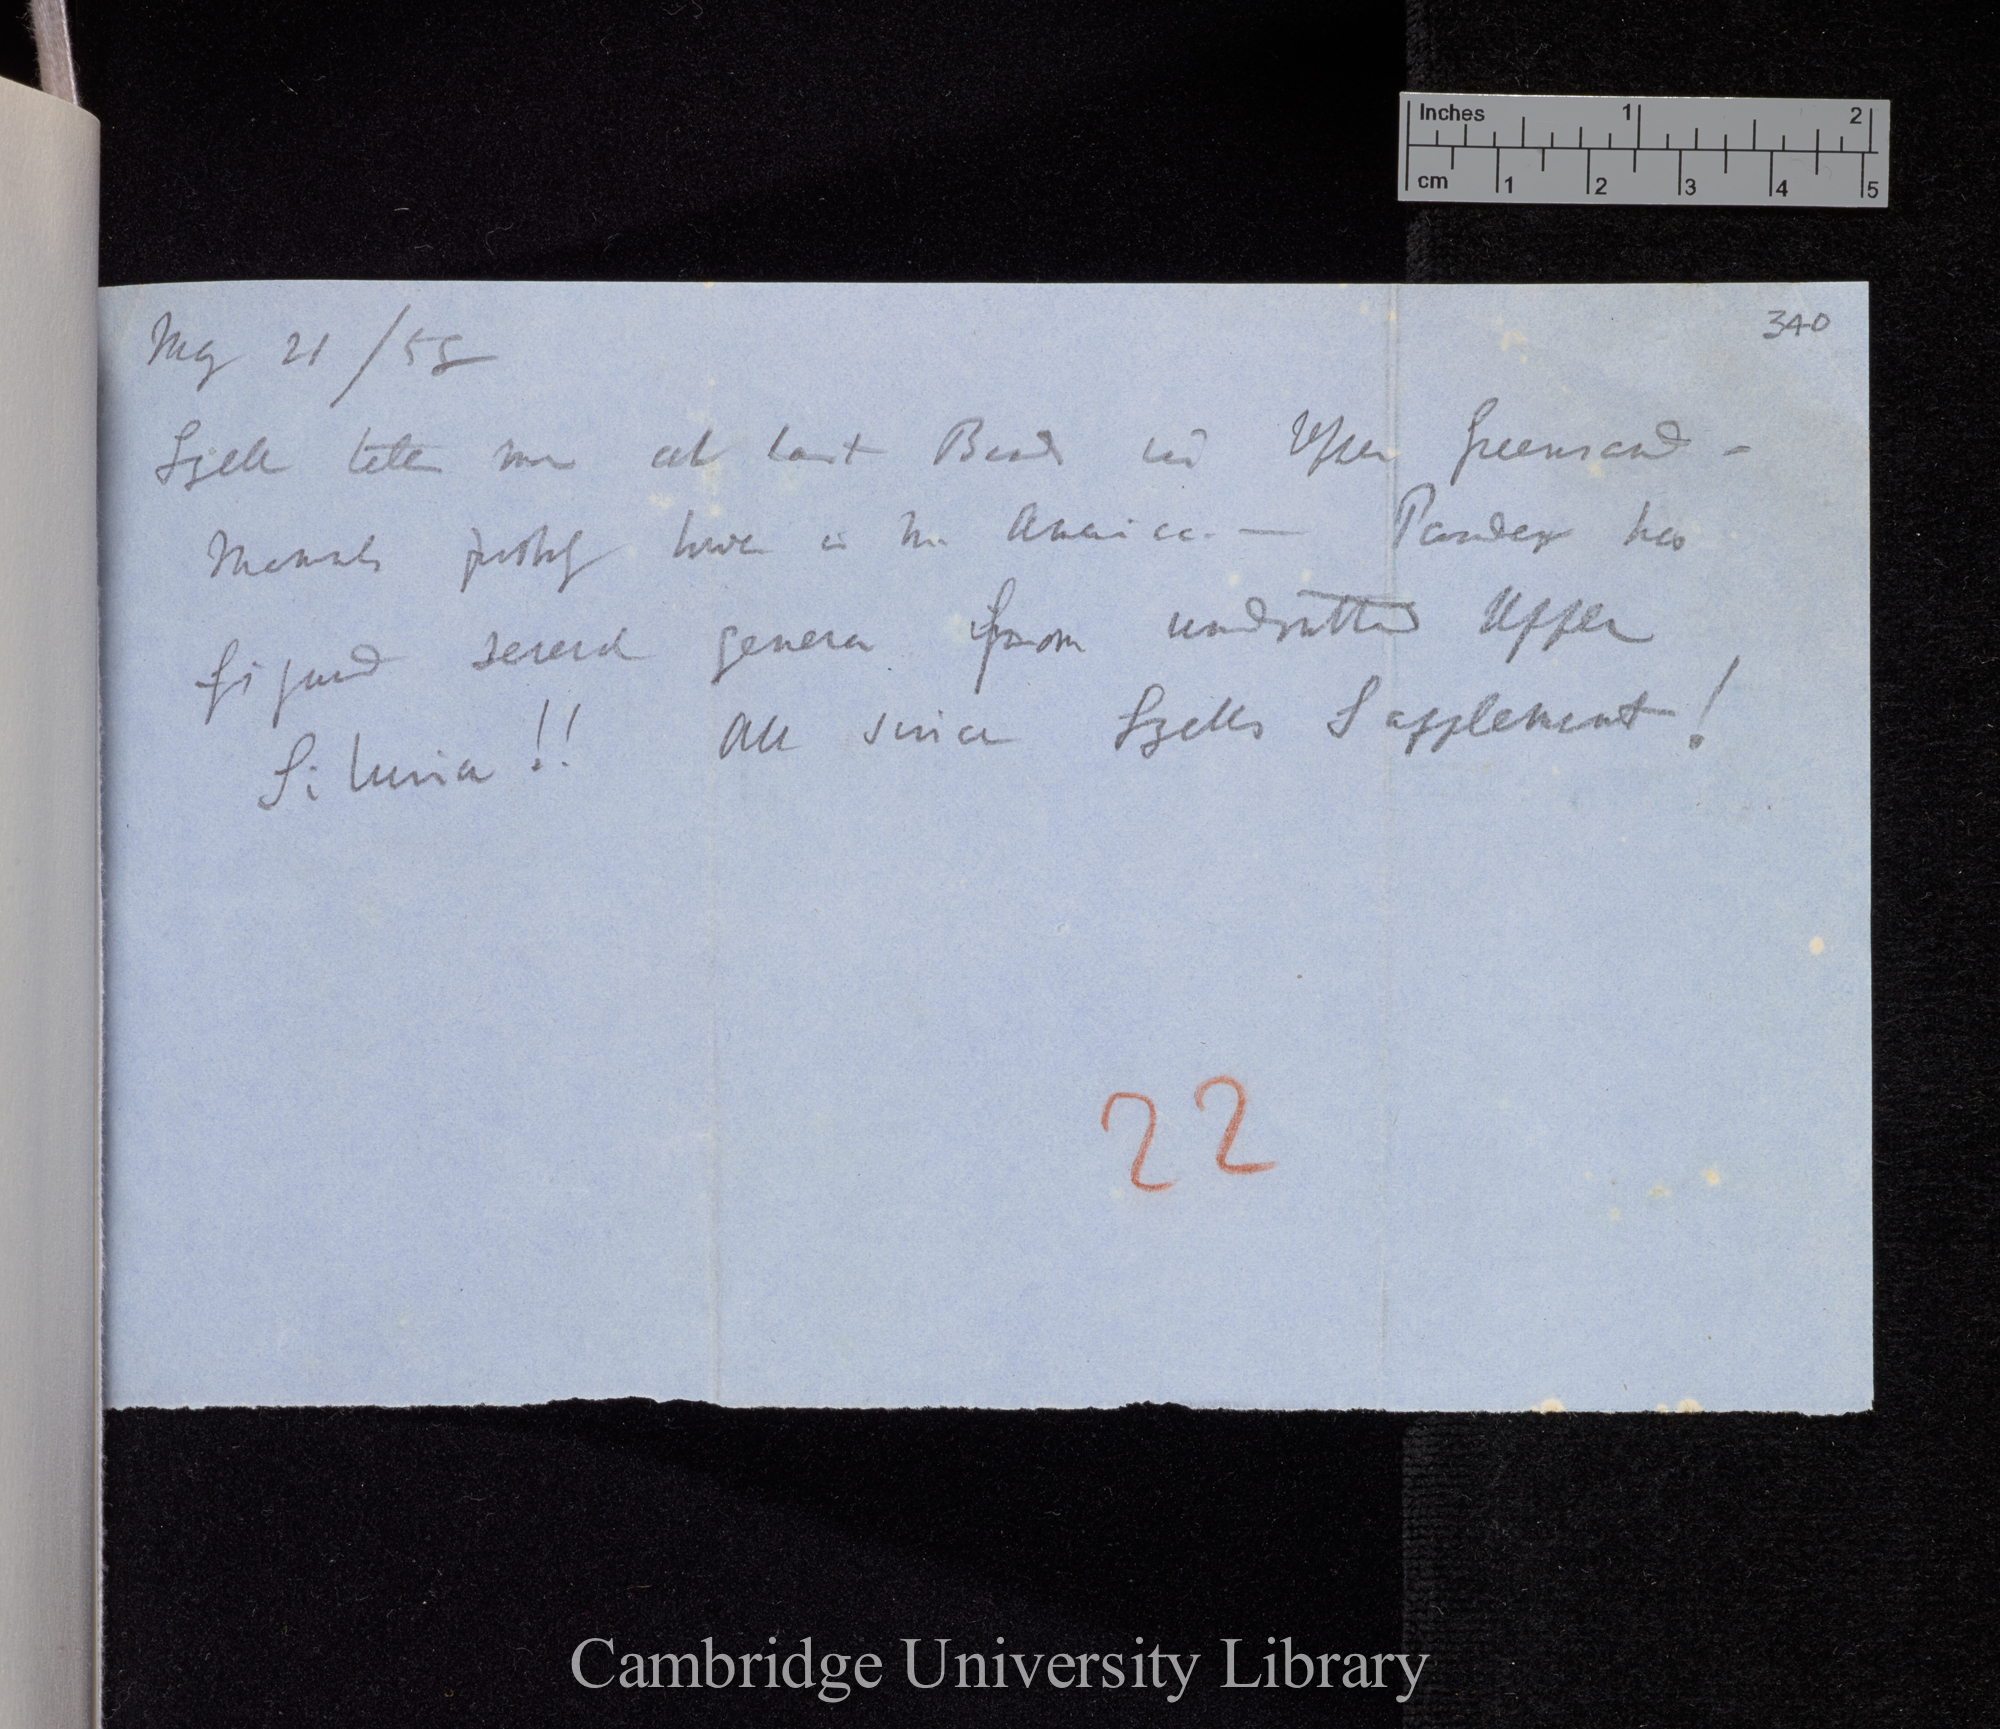 340
May 21/58
Lyell tells me at last Bird in Upper Greensand –
Mammals probly lower in N. America. — Pander has
figured several genera from undoubted Upper
Siluria!! All since Lyells Supplement!
22
Inches 1 2
cm 1 2 3 4 5
Cambridge University Library